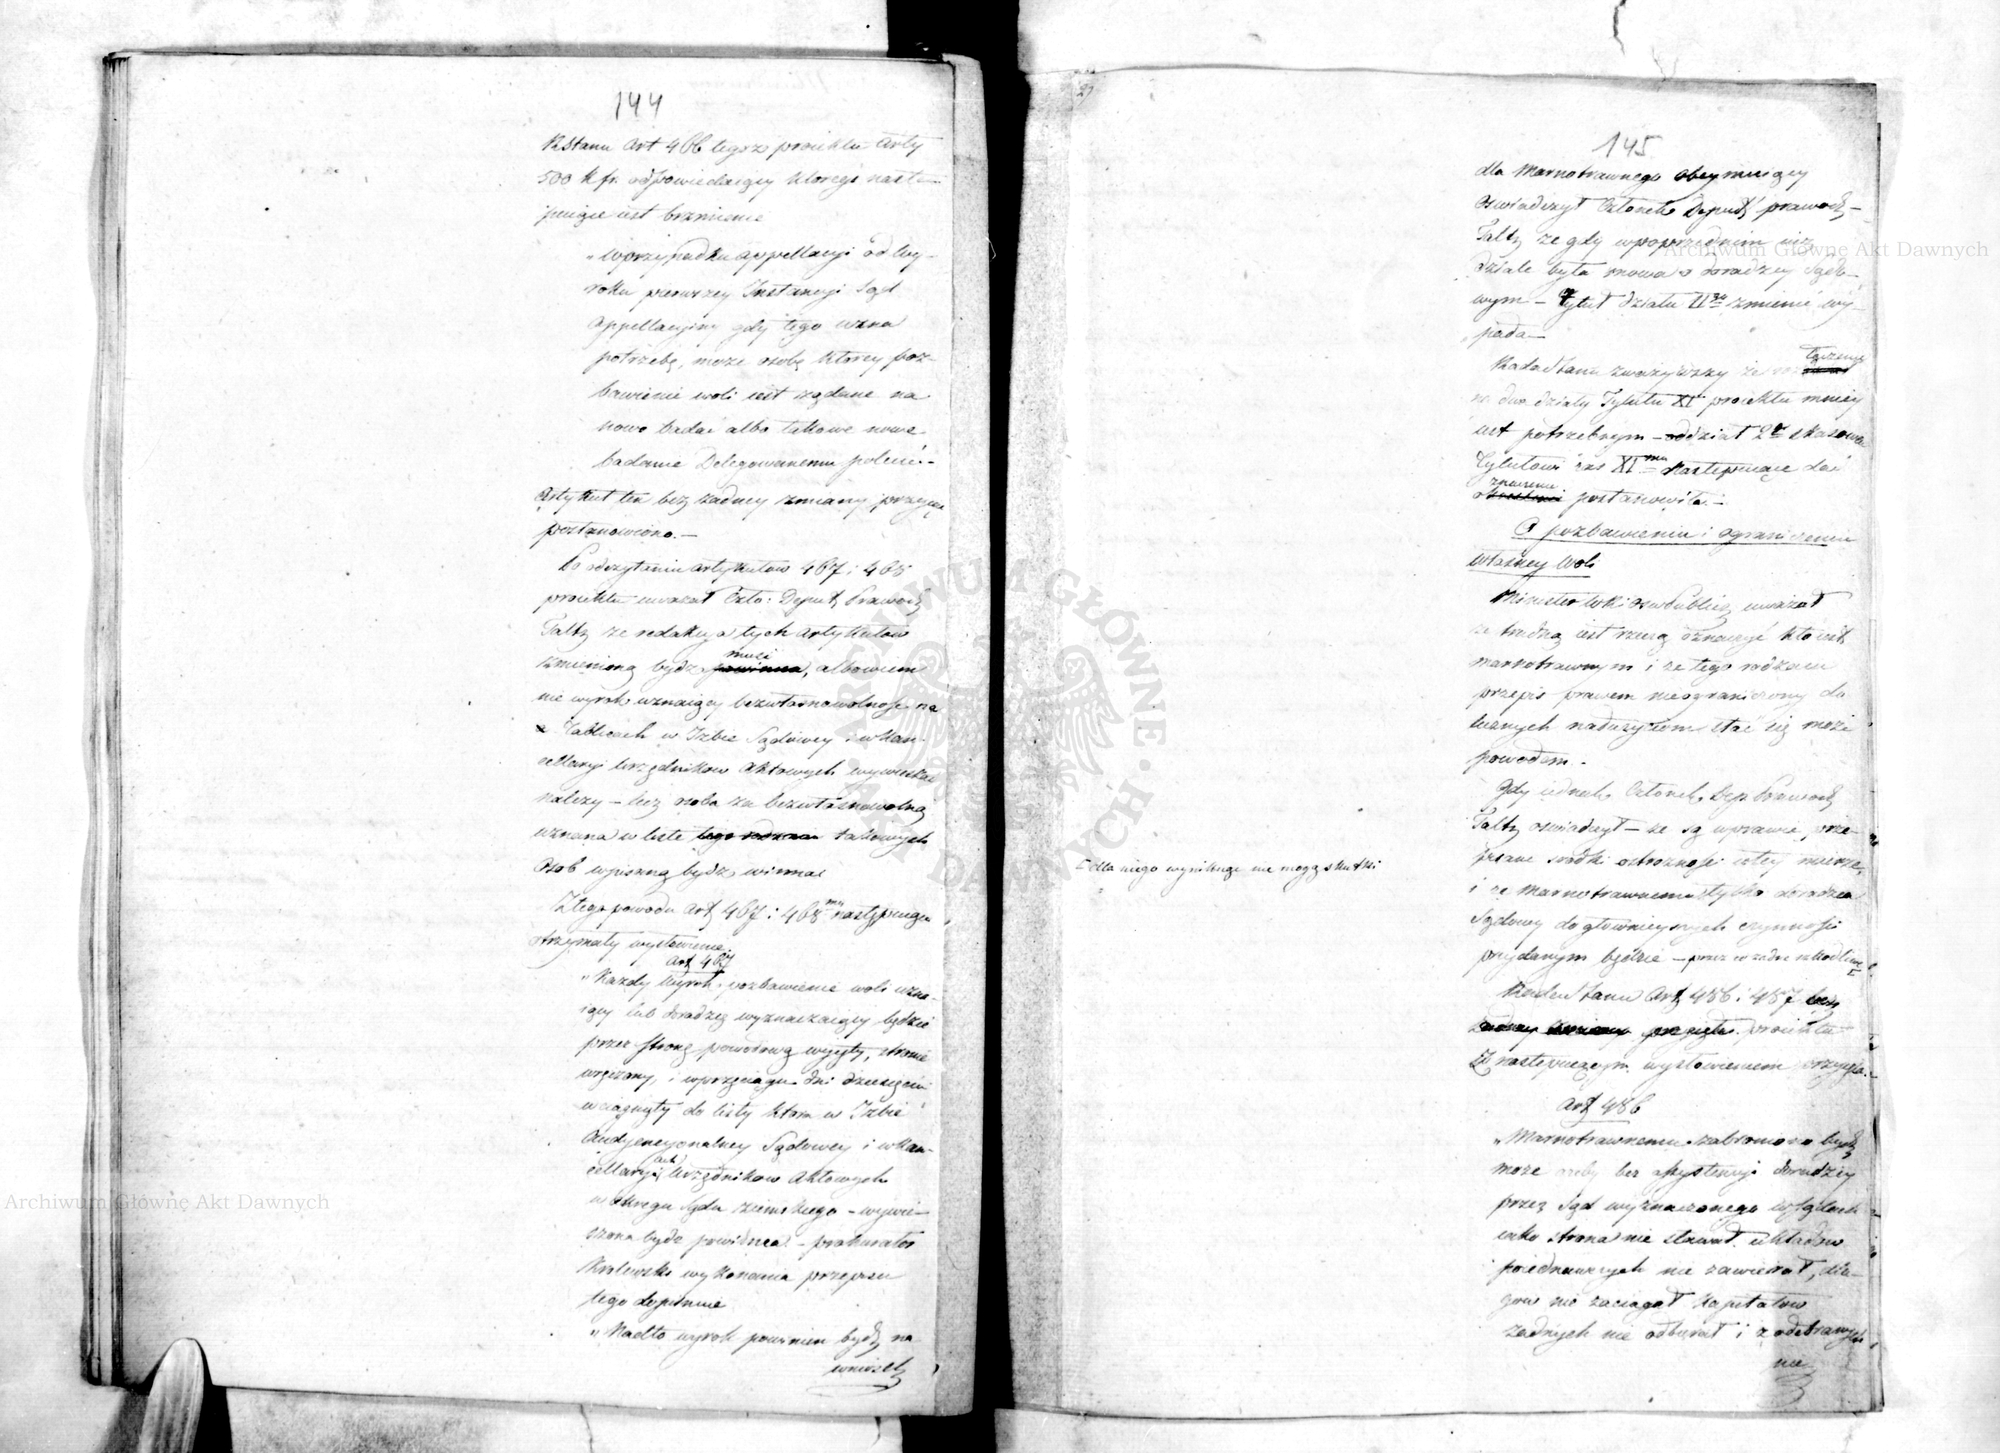 144
R. Stanu Art 466 tegoż proiektu Arty
500 K. fr. odpowiedaiący którego nastę-
puiące iest brzmienie
„ wprzypadku appellacyi od wy-
roku pierwszey Instancyi Sąd
appellacyiny gdy tego uzna
potrzebę, może osobę którey poz-
bawienie woli iest żądane na
nowo badać albo takowe nowe
badanie Delegowanemu polecić.-
Artykuł ten bez żadney zmiany przyiąć
postanowiono. —
Po odczytaniu artykułów 467 i 468
proiektu uważał Czło: Deput Prawod
Faltz że redakcya tych artykułów
musi
zmienioną bydź powinna, albowiem
nie wyrok uznaiący bezwłasnowolność na
Tablicach w Izbie Sądowey i w kan-
cellaryi urzędników Aktowych wywieszać
należy — lecz osoba za bezwłasnowolną
uznana w liste tego rodzaiu takowych
osob wpisaną bydź winna
Z tego powodu Art 467 i 468 następuiące
otrzymały wysłowienie.
Art 467
„ Każdy wyrok pozbawienie woli uzna-
iący lub doradzcę wyznaczaiący będzie
przez stronę powodową wyięty, stronie
wręczony, i wprzeciągu dni dziesięciu
wciągnięty do listy która w Izbie
Audyencyonalney Sądowey i w kan-
cellaryi Urzędników Aktowych
w okręgu Sądu ziemskiego — wywie-
szona bydź powinna — prokurator
Królewski wykonania przepisu
tego dopilnuie
„ Nadto wyrok powinien bydź na
wniosek
145
dla Marnotrawnego obeymuiący
oświadczył Członek Deput prawod-
Faltz że gdy wpoprzednim iuż
dziale była mowa o doradzcy Sądo-
wym — Tytuł działu II go zmienić wy-
pada —
łączenie
Rada Stanu zważywszy że
na dwa działy Tytułu XI proiektu mniey
iest potrzebnym — oddział 2 skasować
Tytułowi zaś XI mu następuiące dać
znaczenie
postanowiła. —
O pozbawieniu i ograniczeniu
własney woli
Minister Wki Osw Publicz uważał
że trudną iest rzeczą oznaczyć kto iest
marnotrawnym i że tego rodzaiu
przepis prawem nieograniczony do
licznych nadużyciom stać się może
powodem. -
Gdy iednak Członek Dep Prawod
Faltz oświadczył — że są wprawie prze-
pisane środki ostrożności wtey mierze,
i że Marnotrawnemu tylko doradca
Sądowy do główniejszych czynności
przydanym będzie — przez co żadne szkodliwe
[ dla niego wyniknąć nie mogą skutki
Rada Stanu Art 486 i 487 bez
żadney zmiany przyięła proiektu
Z następuiącym wysłowieniem przyięła. -
Art 486
„ Marnotrawnemu zabroniono bydź
może ażeby bez assystencyi doradzcy
przez Sąd wyznaczonego w Sądach
iako strona nie stawał układów
poiednawczych nie zawierał, dłu-
gów nie zaciągał Kapitałów
żadnych nie odbierał i z odebranych
nie